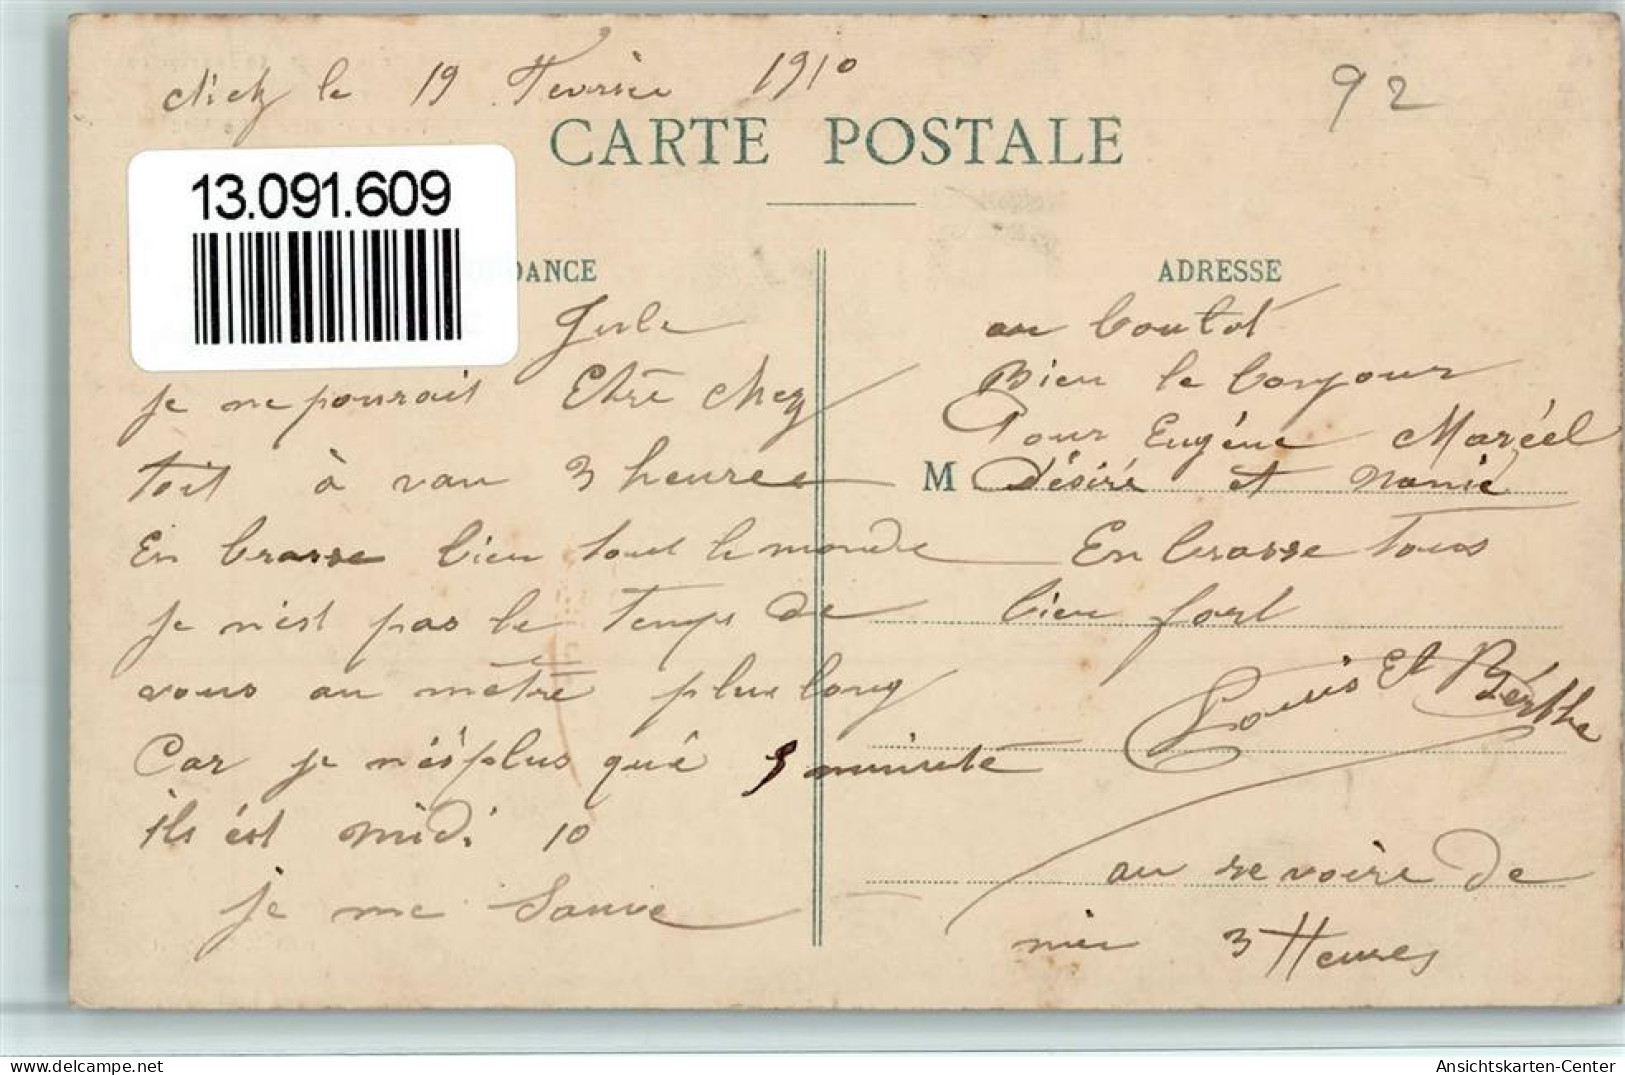 le 19 Fevrie 1910
92
CARTE POSTALE
13.091.609
DANCE
Jule
je ne pourait Etre chez
toit à van 3 heures
En brasse bien tout le monde
je n'est pas le temps de
vous au mètre plus long
Car je n'és plus qué 5 minute
ils ést midi 10
je me Sauve
ADRESSE
au boutot
Bien le bonjour
Pour Eugéne Marcéel
M Désiré et Nanie
En brasse tous
bien fort
Louis Et Bérthe
au revoire de
mie 3 Heures
Ansichtskarten-Center